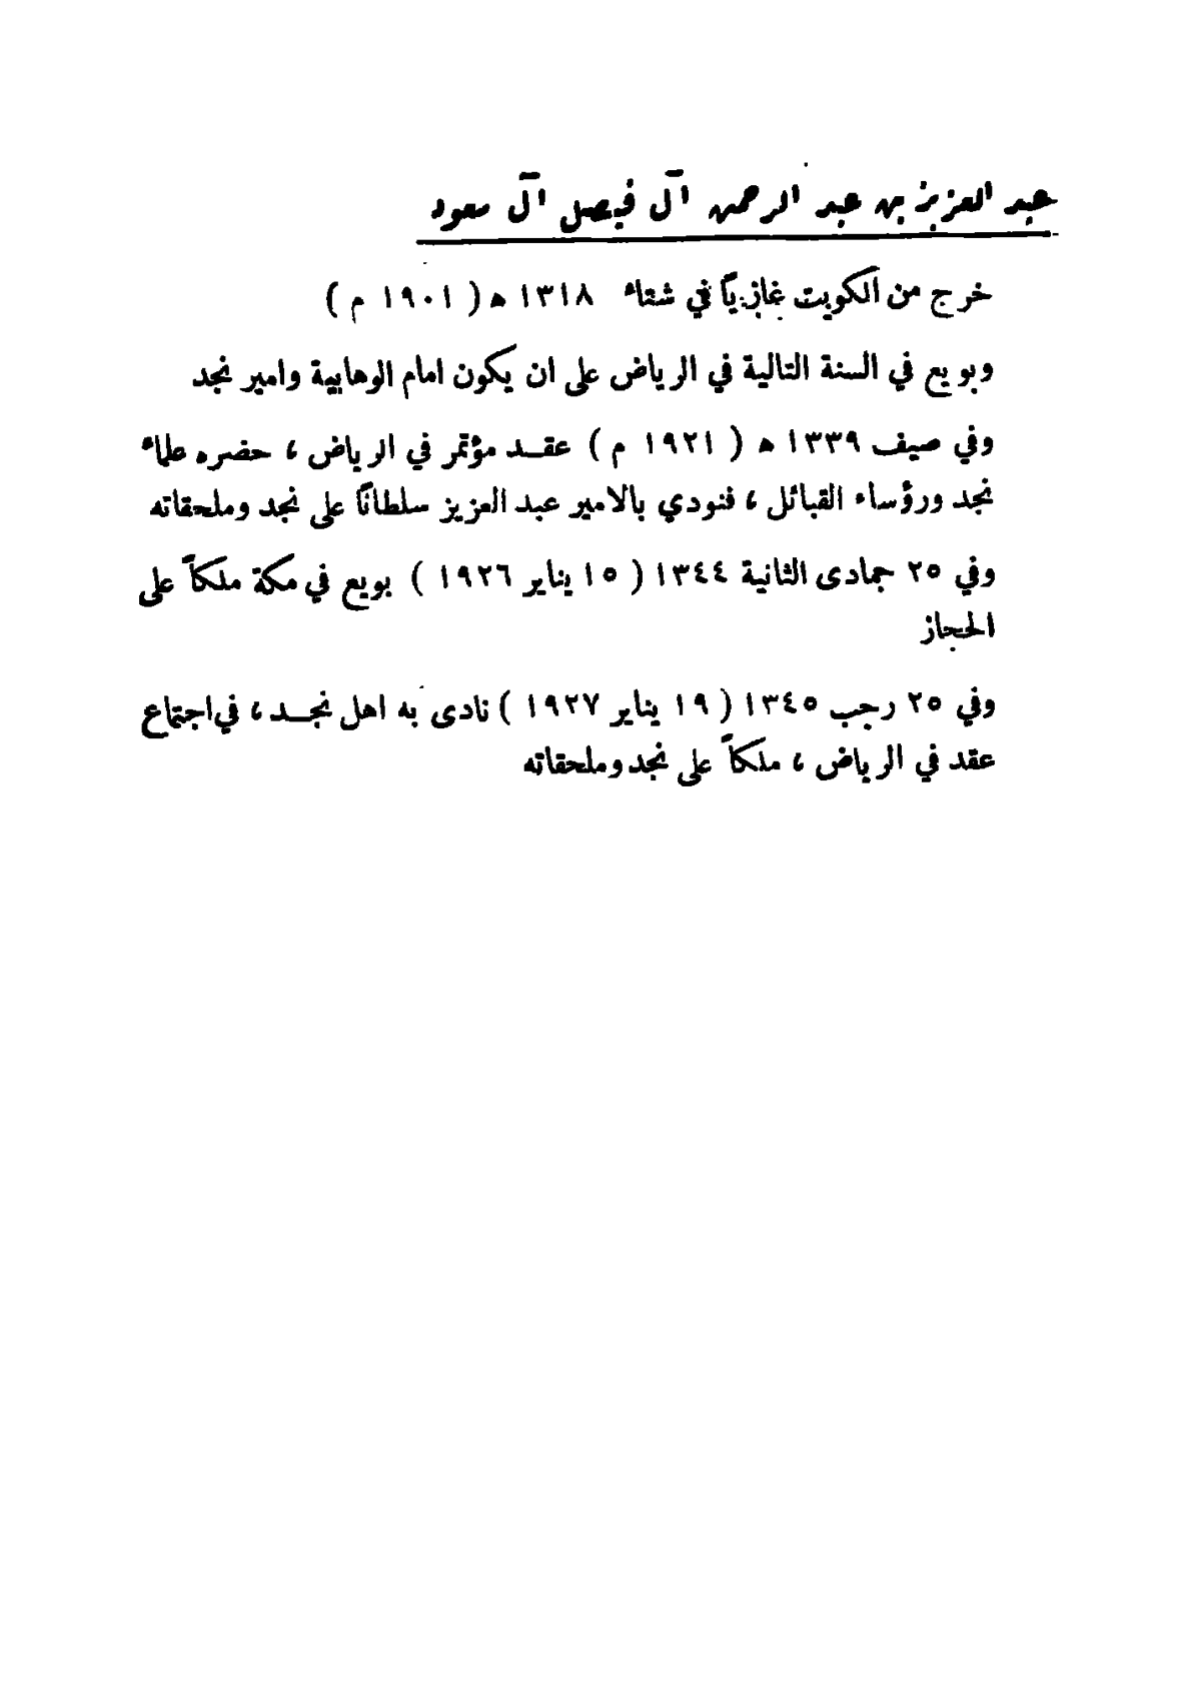 عبد العزيز بن عبد الرحمن آل فيصل آل سعود
خرج من الكويت غازياً في شتاء ١٣١٨ ه ( ١٩٠١ م )
وبويع في السنة التالية في الرياض على ان يكون امام الوهابية وامير نجد
وفي صيف ١٣٣٩ ه ( ١٩٢١ م ) عقد مؤتمر في الرياض ، حضره علماء
نجد ورؤساء القبائل ، فنودي بالامير عبد العزيز سلطاناً على نجد وملحقاته
وفي ٢٥ جمادى الثانية ١٣٤٤ ( ١٥ يناير ١٩٢٦ ) بويع في مكة ملكاً على
الحجاز
وفي ٢٥ رجب ١٣٤٥ ( ١٩ يناير ١٩٢٧ ) نادى به اهل نجد ، في اجتماع
عقد في الرياض ، ملكاً على نجد وملحقاته